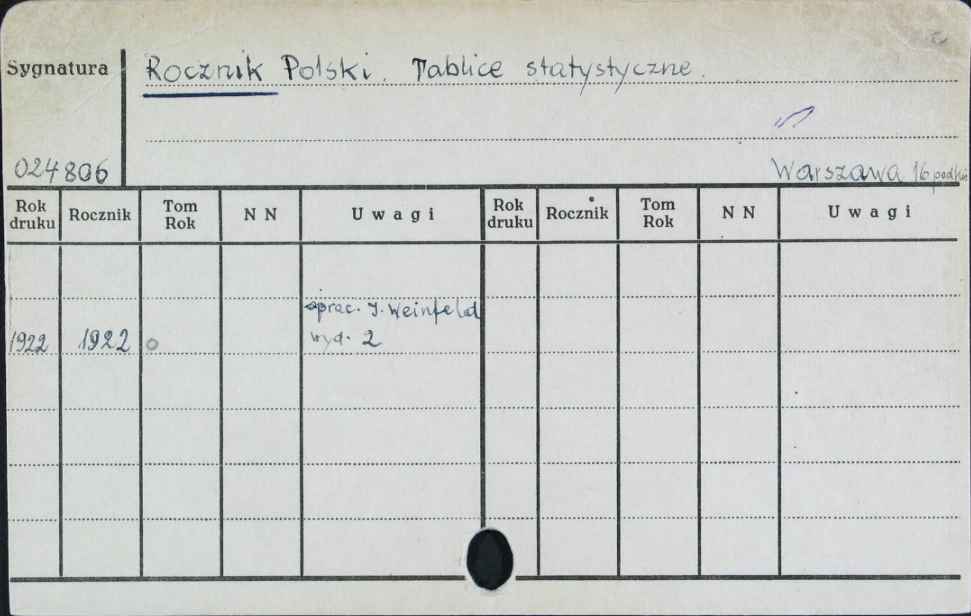 Sygnatura Rocznik Polski. Tablice statystyczne.
024806 Warszawa 16
Rok druku Rocznik Tom Rok N N Uwagi Rok druku Rocznik Tom Rok N N Uwagi
oprac. J. Weinfeld
1922 1922 wyd. 2